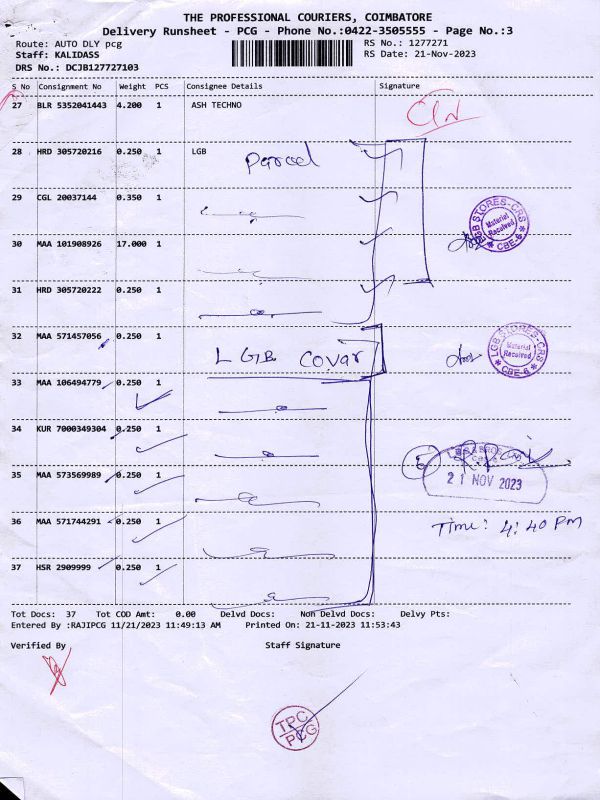 THE PROFESSIONAL COURIERS, COIMBATORE
Delivery Runsheet - PCG - Phone No.:0422-3505555 - Page No.:3
Route: AUTO DLY pcg RS No.: 1277271
Staff: KALIDASS RS Date: 21-Nov-2023
DRS No.: DCJB127727103
S No Consignment No Weight PCS Consignee Details Signature
27 BLR 5352041443 4.200 1 ASH TECHNO
28 HRD 305720216 0.250 1 LGB Parcel
29 CGL 20037144 0.350 1
LGB STORES-CRS
Material
Received
CBE-6
30 MAA 101908926 17.000 1
31 HRD 305720222 0.250 1
32 MAA 571457056 0.250 1
LGB Covar
LGB STORES-CRS
Material
Received
CBE-6
33 MAA 106494779 0.250 1
34 KUR 7000349304 0.250 1
35 MAA 573569989 0.250 1
21 NOV 2023
36 MAA 571744291 0.250 1
Time: 4:40 PM
37 HSR 2909999 0.250 1
Tot Docs: 37 Tot COD Amt: 0.00 Delvd Docs: Non Delvd Docs: Delvy Pts:
Entered By :RAJIPCG 11/21/2023 11:49:13 AM Printed On: 21-11-2023 11:53:43
Verified By Staff Signature
TPC
PCG